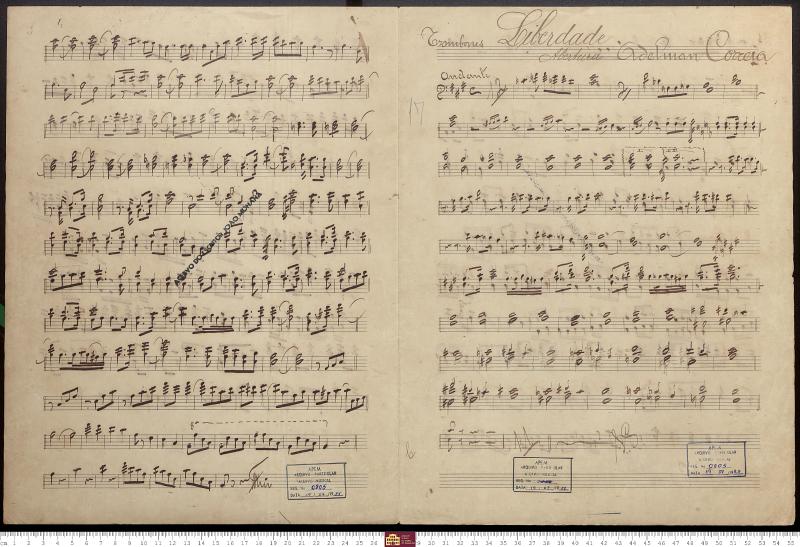 Fim
ACERVO DOCUMENTAL JOÃO MOHANA
APEM
ARQUIVO PARTICULAR
ACERVO MUSICAL
REG. No 0805
DATA
Trombones
Liberdade
Abertura
Adelman Corrêa
Andante
17
APEM
ARQUIVO PARTICULAR
ACERVO MUSICAL
REG. No
DATA
APEM
ARQUIVO PARTICULAR
ACERVO MUSICAL
REG. No 0805
DATA
cm 1 2 3 4 5 6 7 8 9 10 11 12 13 14 15 16 17 18 19 20 21 22 23 24 25 26 29 30 31 32 33 34 35 36 37 38 39 40 41 42 43 44 45 46 47 48 49 50 51 52 53 54 55